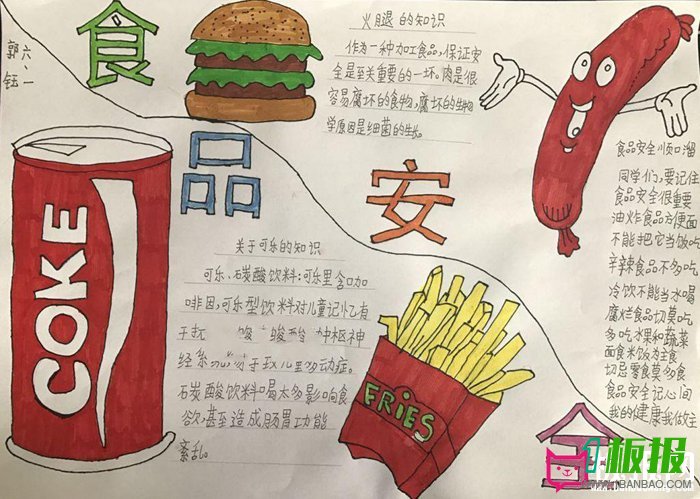 食
品
安
全
六、一
郭 钰
火腿的知识
作为一种加工食品,保证安
全是至关重要的一环。肉是很
容易腐坏的食物,腐坏的生物
学原因是细菌的生长。
COKE
关于可乐的知识
可乐、石炭酸饮料:可乐里含咖
啡因,可乐型饮料对儿童记忆有
干扰
中枢神
经系
儿童多动症。
石炭酸饮料喝太多影响食
欲,甚至造成肠胃功能
紊乱。
FRIES
食品安全顺口溜
同学们,要记住
食品安全很重要
油炸食品方便面
不能把它当饭吃
辛辣食品不多吃
冷饮不能当水喝
腐烂食品切莫吃
多吃水果和蔬菜
面食米饭为主食
切忌零食莫多食
食品安全记心间
我的健康我做主
板报
WWW.1BANBAO.COM